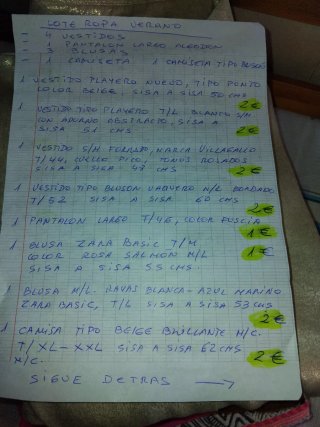 LOTE ROPA VERANO
- 4 VESTIDOS
- 1 PANTALON LARGO ALGODON
- 3 BLUSAS
- 1 CAMISETA 1 CAMISETA TIPO
1 VESTIDO PLAYERO NUEVO, TIPO PUNTO
COLOR BEIGE, SISA A SISA 50 CMS
2€
1 VESTIDO TIPO PLAYERO T/L BLANCO S/M
CON ADORNO ABSTRACTO, SISA A
SISA 51 CMS
2€
1 VESTIDO S/M FORRADO, MARIA VILLAGALLO
T/44, CUELLO PICO, TONOS ROSADOS
SISA A SISA 48 CMS
2€
1 VESTIDO TIPO BLUSON VAQUERO M/L BORDADO
T/52 SISA A SISA 60 CMS
2€
1 PANTALON LARGO T/46, COLOR FUCSIA
1€
1 BLUSA ZARA BASIC T/M
1€
COLOR ROSA SALMON M/L
SISA A SISA 55 CMS.
1 BLUSA M/L. RAYAS BLANCA-AZUL MARINO
ZARA BASIC, T/L SISA A SISA 53 CMS
2€
1 CAMISA TIPO BEIGE BRILLANTE M/C.
T/XL-XXL SISA A SISA 62 CMS
M/C.
2€
SIGUE DETRAS →